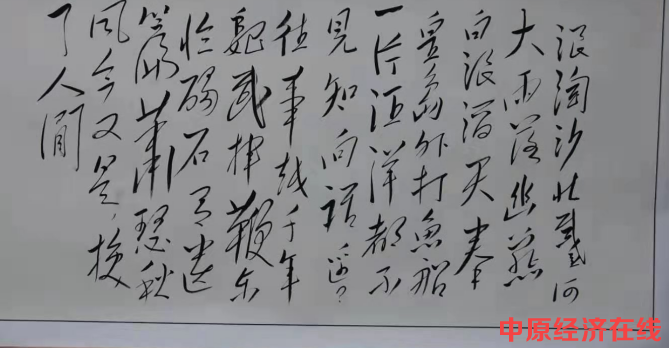 浪淘沙北戴河
大雨落幽燕
白浪滔天秦
皇岛外打魚船
一片汪洋都不
見知向谁边
往事越千年
魏武挥鞭东
临碣石有遗
篇萧瑟秋
风今又是换
了人间
中原经济在线